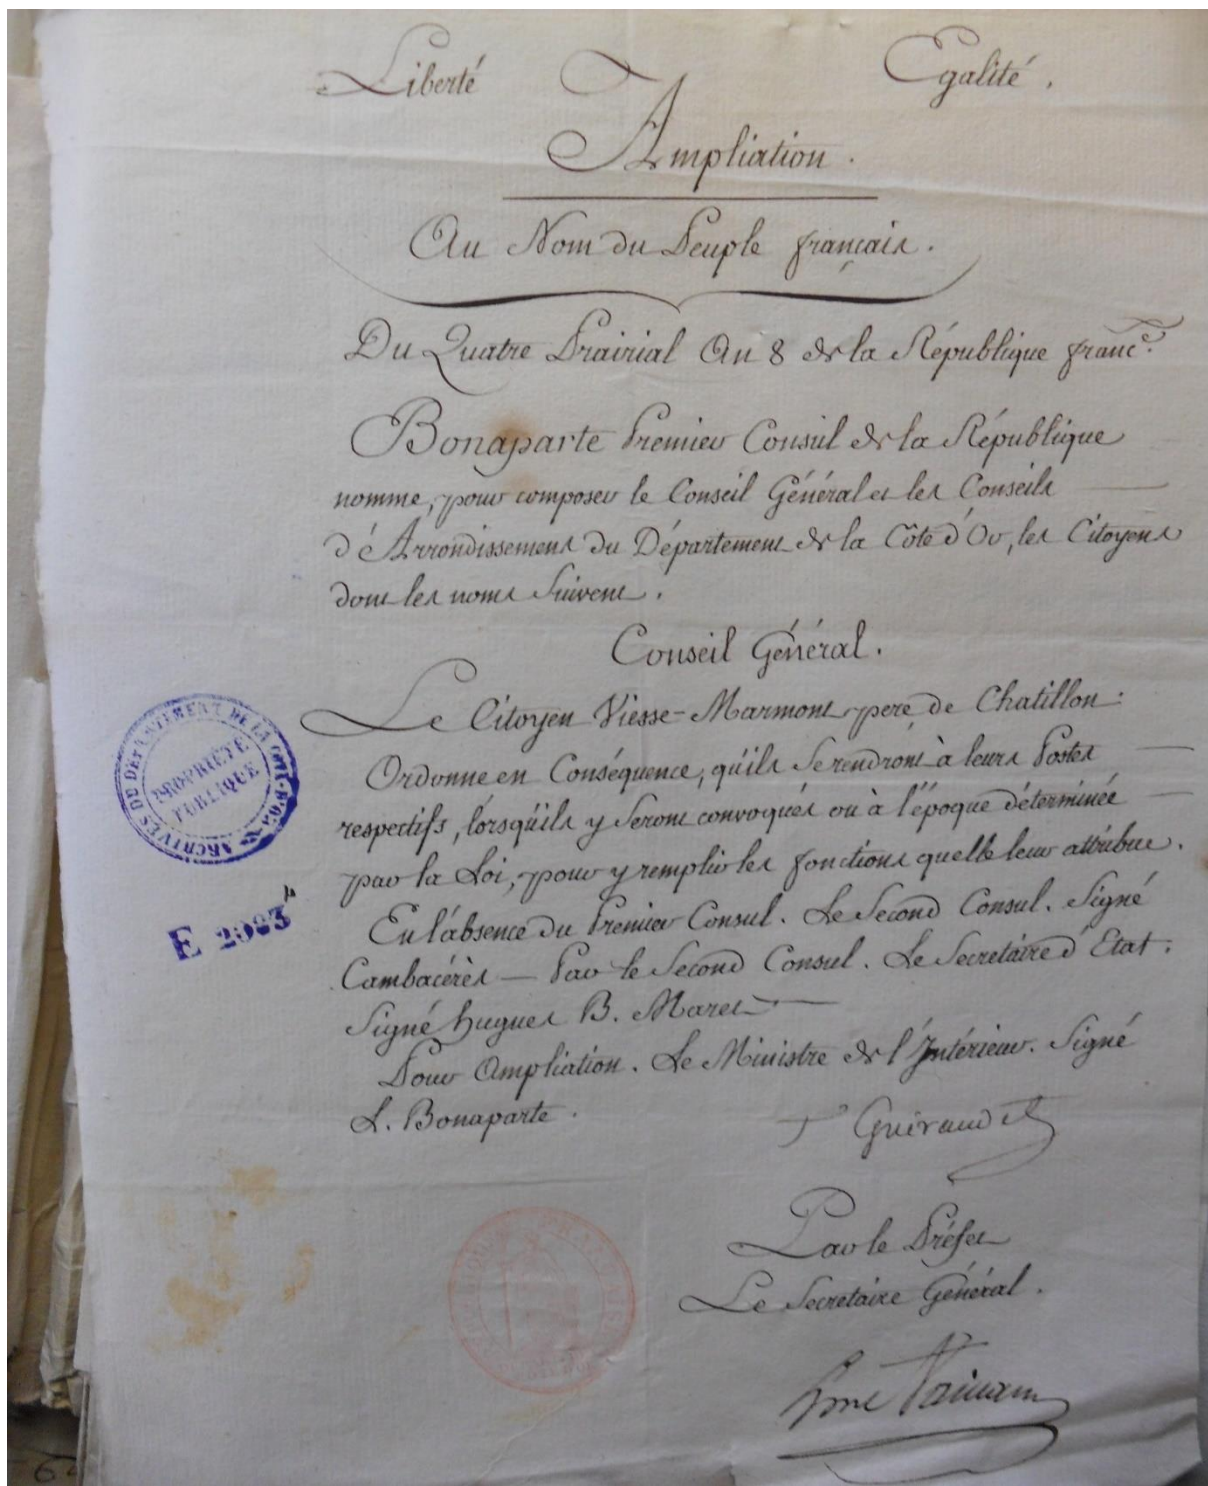 Liberté Egalité.
Ampliation.
Au Nom du Peuple français.
Du Quatre Prairial An 8 de la République franc.e
Bonaparte Premier Consul de la République
nomme, pour composer le Conseil Général et les Conseils
d'Arrondissement du Département de la Côte d'Or, les Citoyens
dont les noms Suivent.
Conseil Général.
Le Citoyen Viesse-Marmont pere de Chatillon.
Ordonne en Conséquence, qu'ils Se rendront à leurs Postes
respectifs, lorsqu'ils y Seront convoqués ou à l'époque déterminée
par la Loi, pour y remplir les fonctions quelle leur attribue.
En l'absence du Premier Consul. Le Second Consul. Signé
Cambacérès — Par le Second Consul. Le Secretaire d'Etat.
Signé hugues B. Maret
Pour Ampliation. Le Ministre de l'Intérieur. Signé
L. Bonaparte.
ARCHIVES DU DÉPARTEMENT DE LA COTE-D'OR
PROPRIÉTÉ
PUBLIQUE
E 2983
Par le Préfet
Le Secretaire Général.